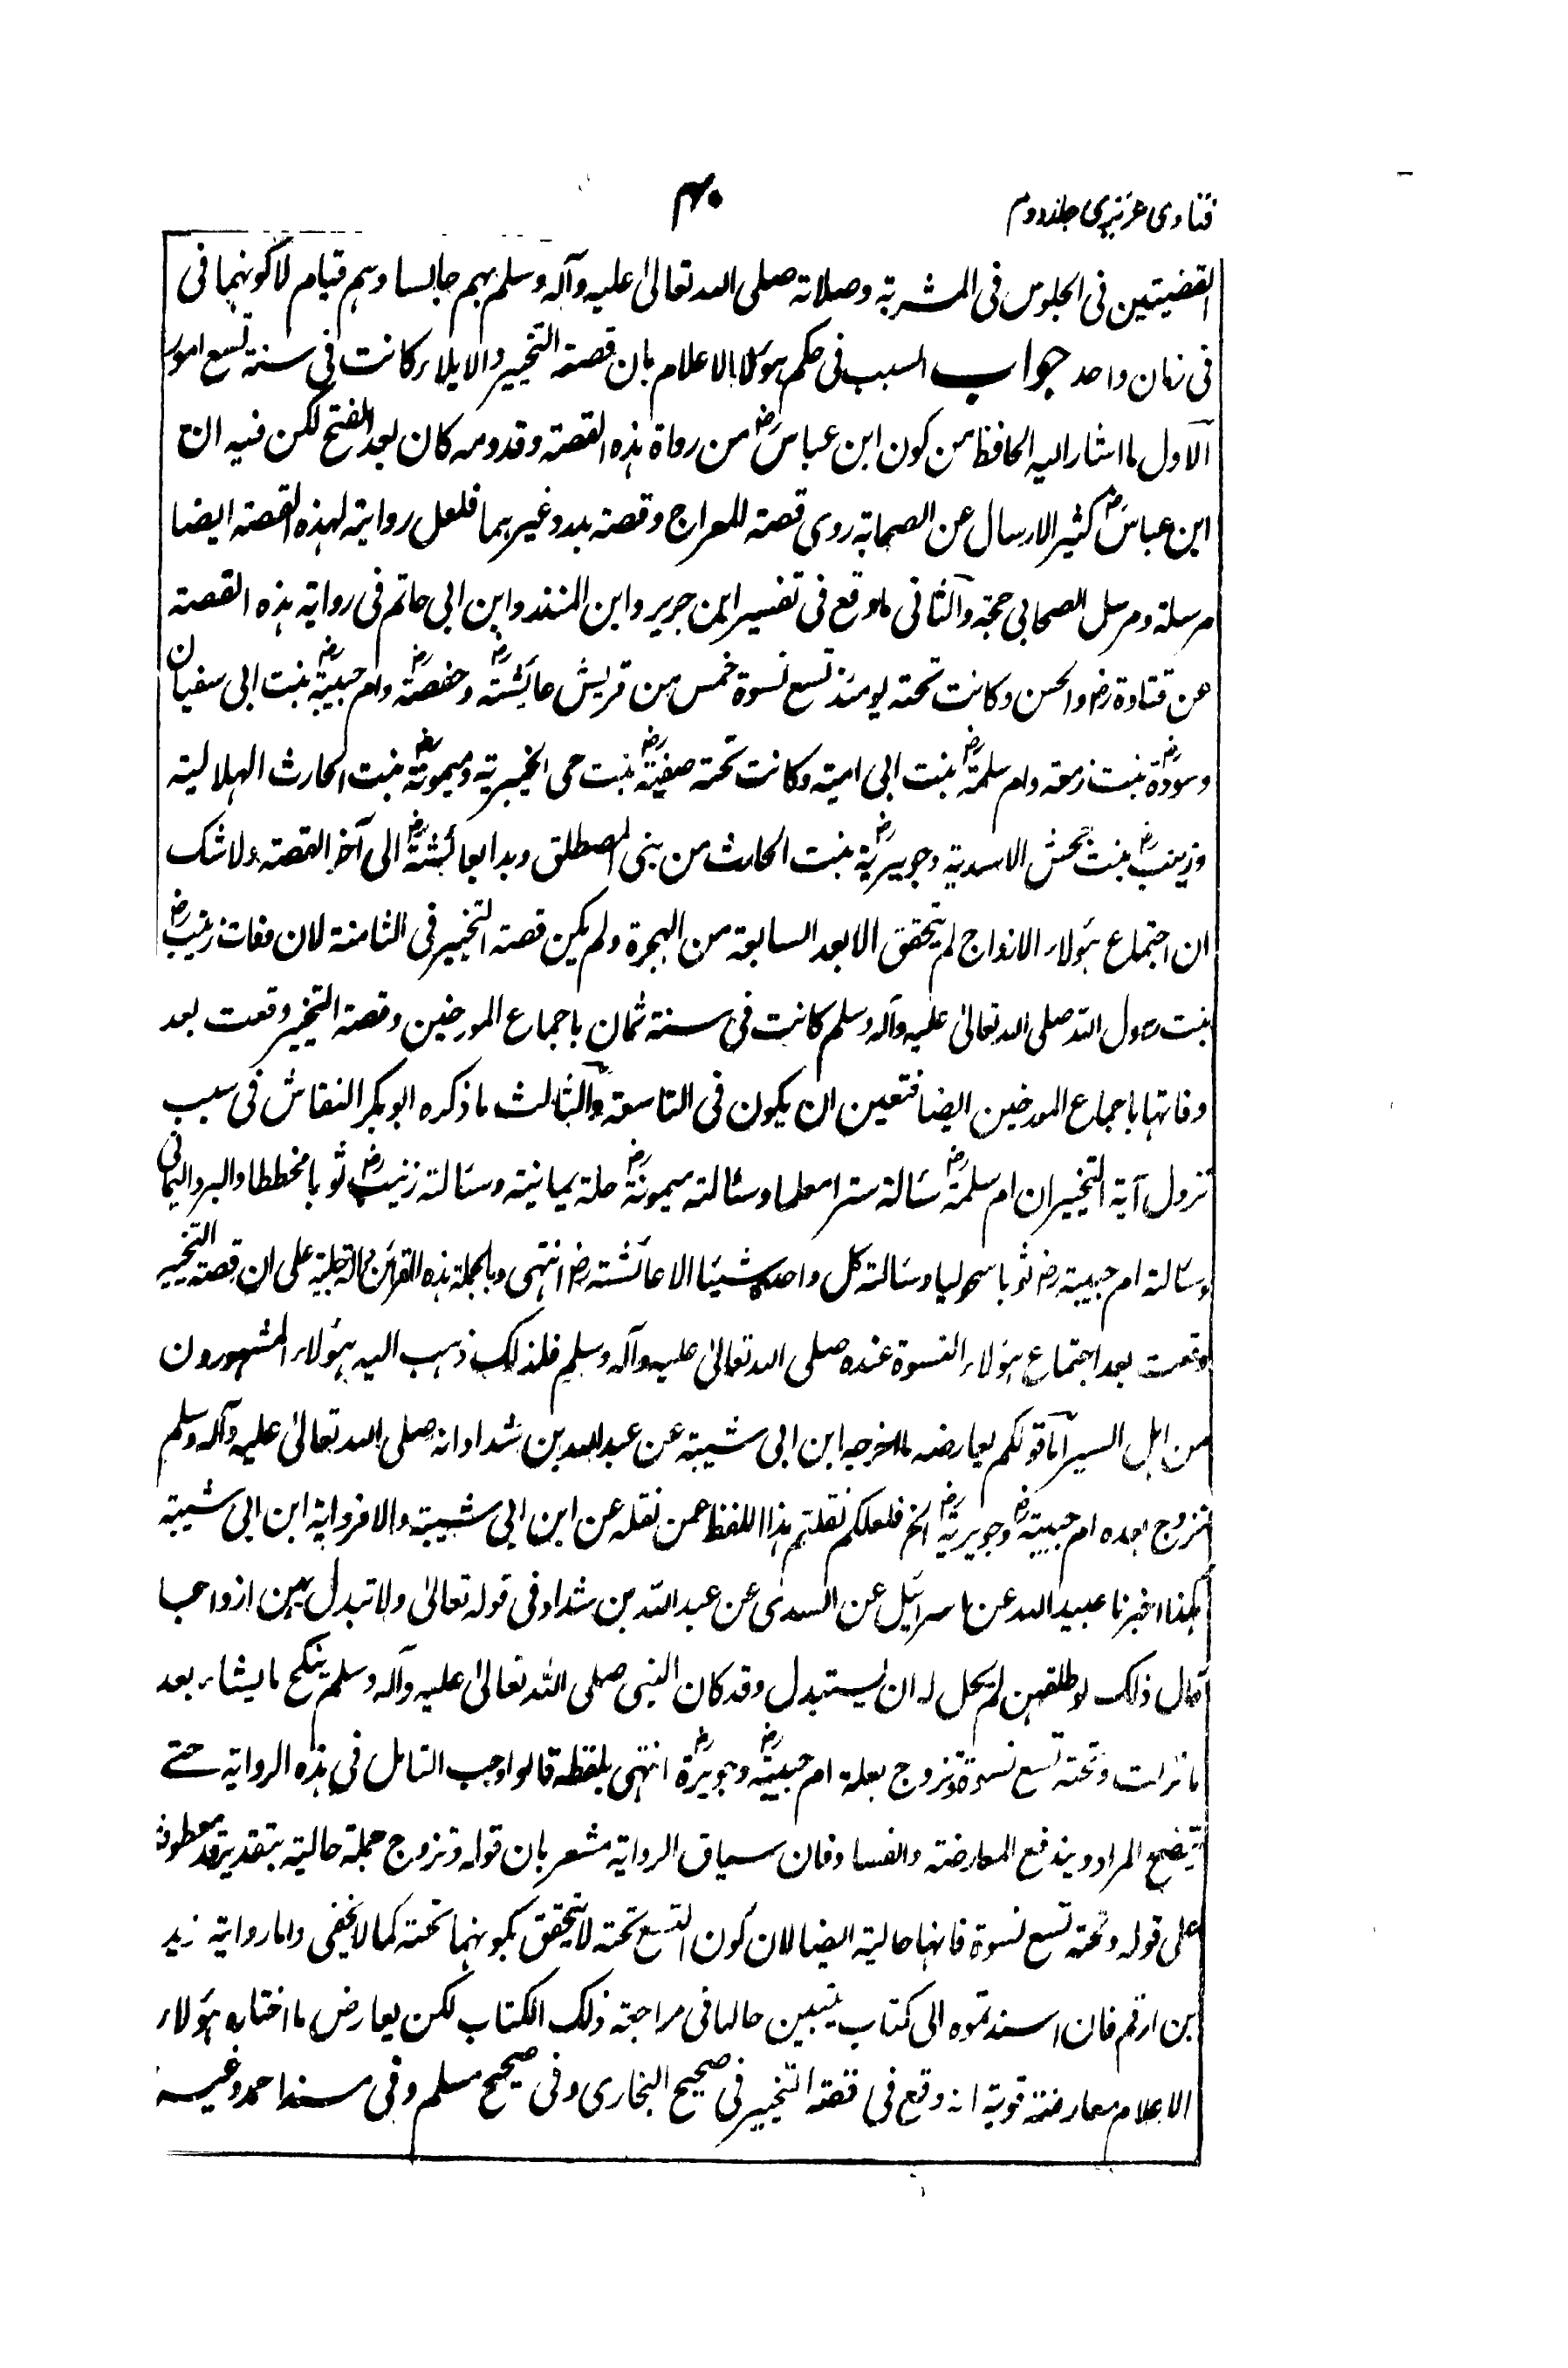 فتاوی عزیزی جلد دوم
۴۰
القضیتین فی الجلوس فی المشربة وصلاته صلی الله تعالیٰ علیه وآله وسلم بهم جالسا وهم قیام لا کونهما فی
فی زمان واحد جواب السبب فی حکم هؤلاء الاعلام بان قصة التخییر والایلاء کانت فی سنة تسع امور
الاول ما اشار الیه الحافظ من کون ابن عباس رض من رواة هذه القصة وقدومه کان بعد الفتح لکن فیه ان
ابن عباس رض کثیر الارسال عن الصحابة روی قصة المعراج وقصة بدر وغیرهما فلعل روایته لهذه القصة ایضا
مرسلة ومرسل الصحابی حجة والثانی ما وقع فی تفسیر ابن جریر وابن المنذر وابن ابی حاتم فی روایة هذه القصة
عن قتادة رض والحسن وکانت تحته یومئذ تسع نسوة خمس من قریش عائشة رض وحفصة رض وام حبیبة رض بنت ابی سفیان
وسودة رض بنت زمعة وام سلمة رض بنت ابی امیة وکانت تحته صفیة رض بنت حی الخیبریة ومیمونة رض بنت الحارث الهلالیة
وزینب رض بنت جحش الاسدیة وجویریة رض بنت الحارث من بنی المصطلق وبدا بعائشة رض الی آخر القصة ولا شک
ان اجتماع هؤلاء الازواج لم یتحقق الا بعد السابعة من الهجرة ولم یکن قصة التخییر فی الثامنة لان وفات زینب رض
بنت رسول الله صلی الله تعالیٰ علیه وآله وسلم کانت فی سنة ثمان باجماع المورخین وقصة التخییر وقعت بعد
وفاتها باجماع المورخین ایضا فتعین ان یکون فی التاسعة والثالث ما ذکره ابو بکر النقاش فی سبب
نزول آیة التخییر ان ام سلمة رض سألته سترا معلما وسألته میمونة رض حلة یمانیة وسألته زینب رض ثوبا مخططا والبرد الیمانی
وسألته ام حبیبة رض ثوبا سحولیا وسألته کل واحدة شیئا الا عائشة رض انتهی وبالجملة هذه القرائن دالة علی ان قصة التخییر
وقعت بعد اجتماع هؤلاء النسوة عنده صلی الله تعالیٰ علیه وآله وسلم فلذلک ذهب الیه هؤلاء المشهورون
من اهل السیر اما قولکم یعارضه ما اخرجه ابن ابی شیبة عن عبد الله بن شداد انه صلی الله تعالیٰ علیه وآله وسلم
تزوج بعده ام حبیبة رض وجویریة رض الخ فلعلکم نقلتم هذا اللفظ عمن نقله عن ابن ابی شیبة والا فروایة ابن ابی شیبة
هکذا اخبرنا عبید الله عن اسرائیل عن السدی عن عبد الله بن شداد فی قوله تعالیٰ ولا تبدل بهن ازواجا
قال ذلک لو طلقهن لم یحل له ان یستبدل وقد کان النبی صلی الله تعالیٰ علیه وآله وسلم ینکح ما یشاء بعد
ما نزلت وتحته تسع نسوة وتزوج بعده ام حبیبة رض وجویرة رض انتهی بلفظه قالوا وجب التامل فی هذه الروایة حتے
یتضح المراد ویندفع المعارضة والفساد فان سیاق الروایة مشعر بان قوله وتزوج جملة حالیة بتقدیر قد معطوفة
علی قوله وتحته تسع نسوة فانها حالیة ایضا لان کون التسع تحته لا یتحقق بکونهما تحته کما لا یخفی واما روایة زید
بن ارقم فان اسندتموه الی کتاب یتبین حالها فی مراجعة ذلک الکتاب لکن یعارض ما اختاره هؤلاء
الاعلام معارضة قویة انه وقع فی قصة التخییر فی صحیح البخاری وفی صحیح مسلم وفی مسند احمد وغیره